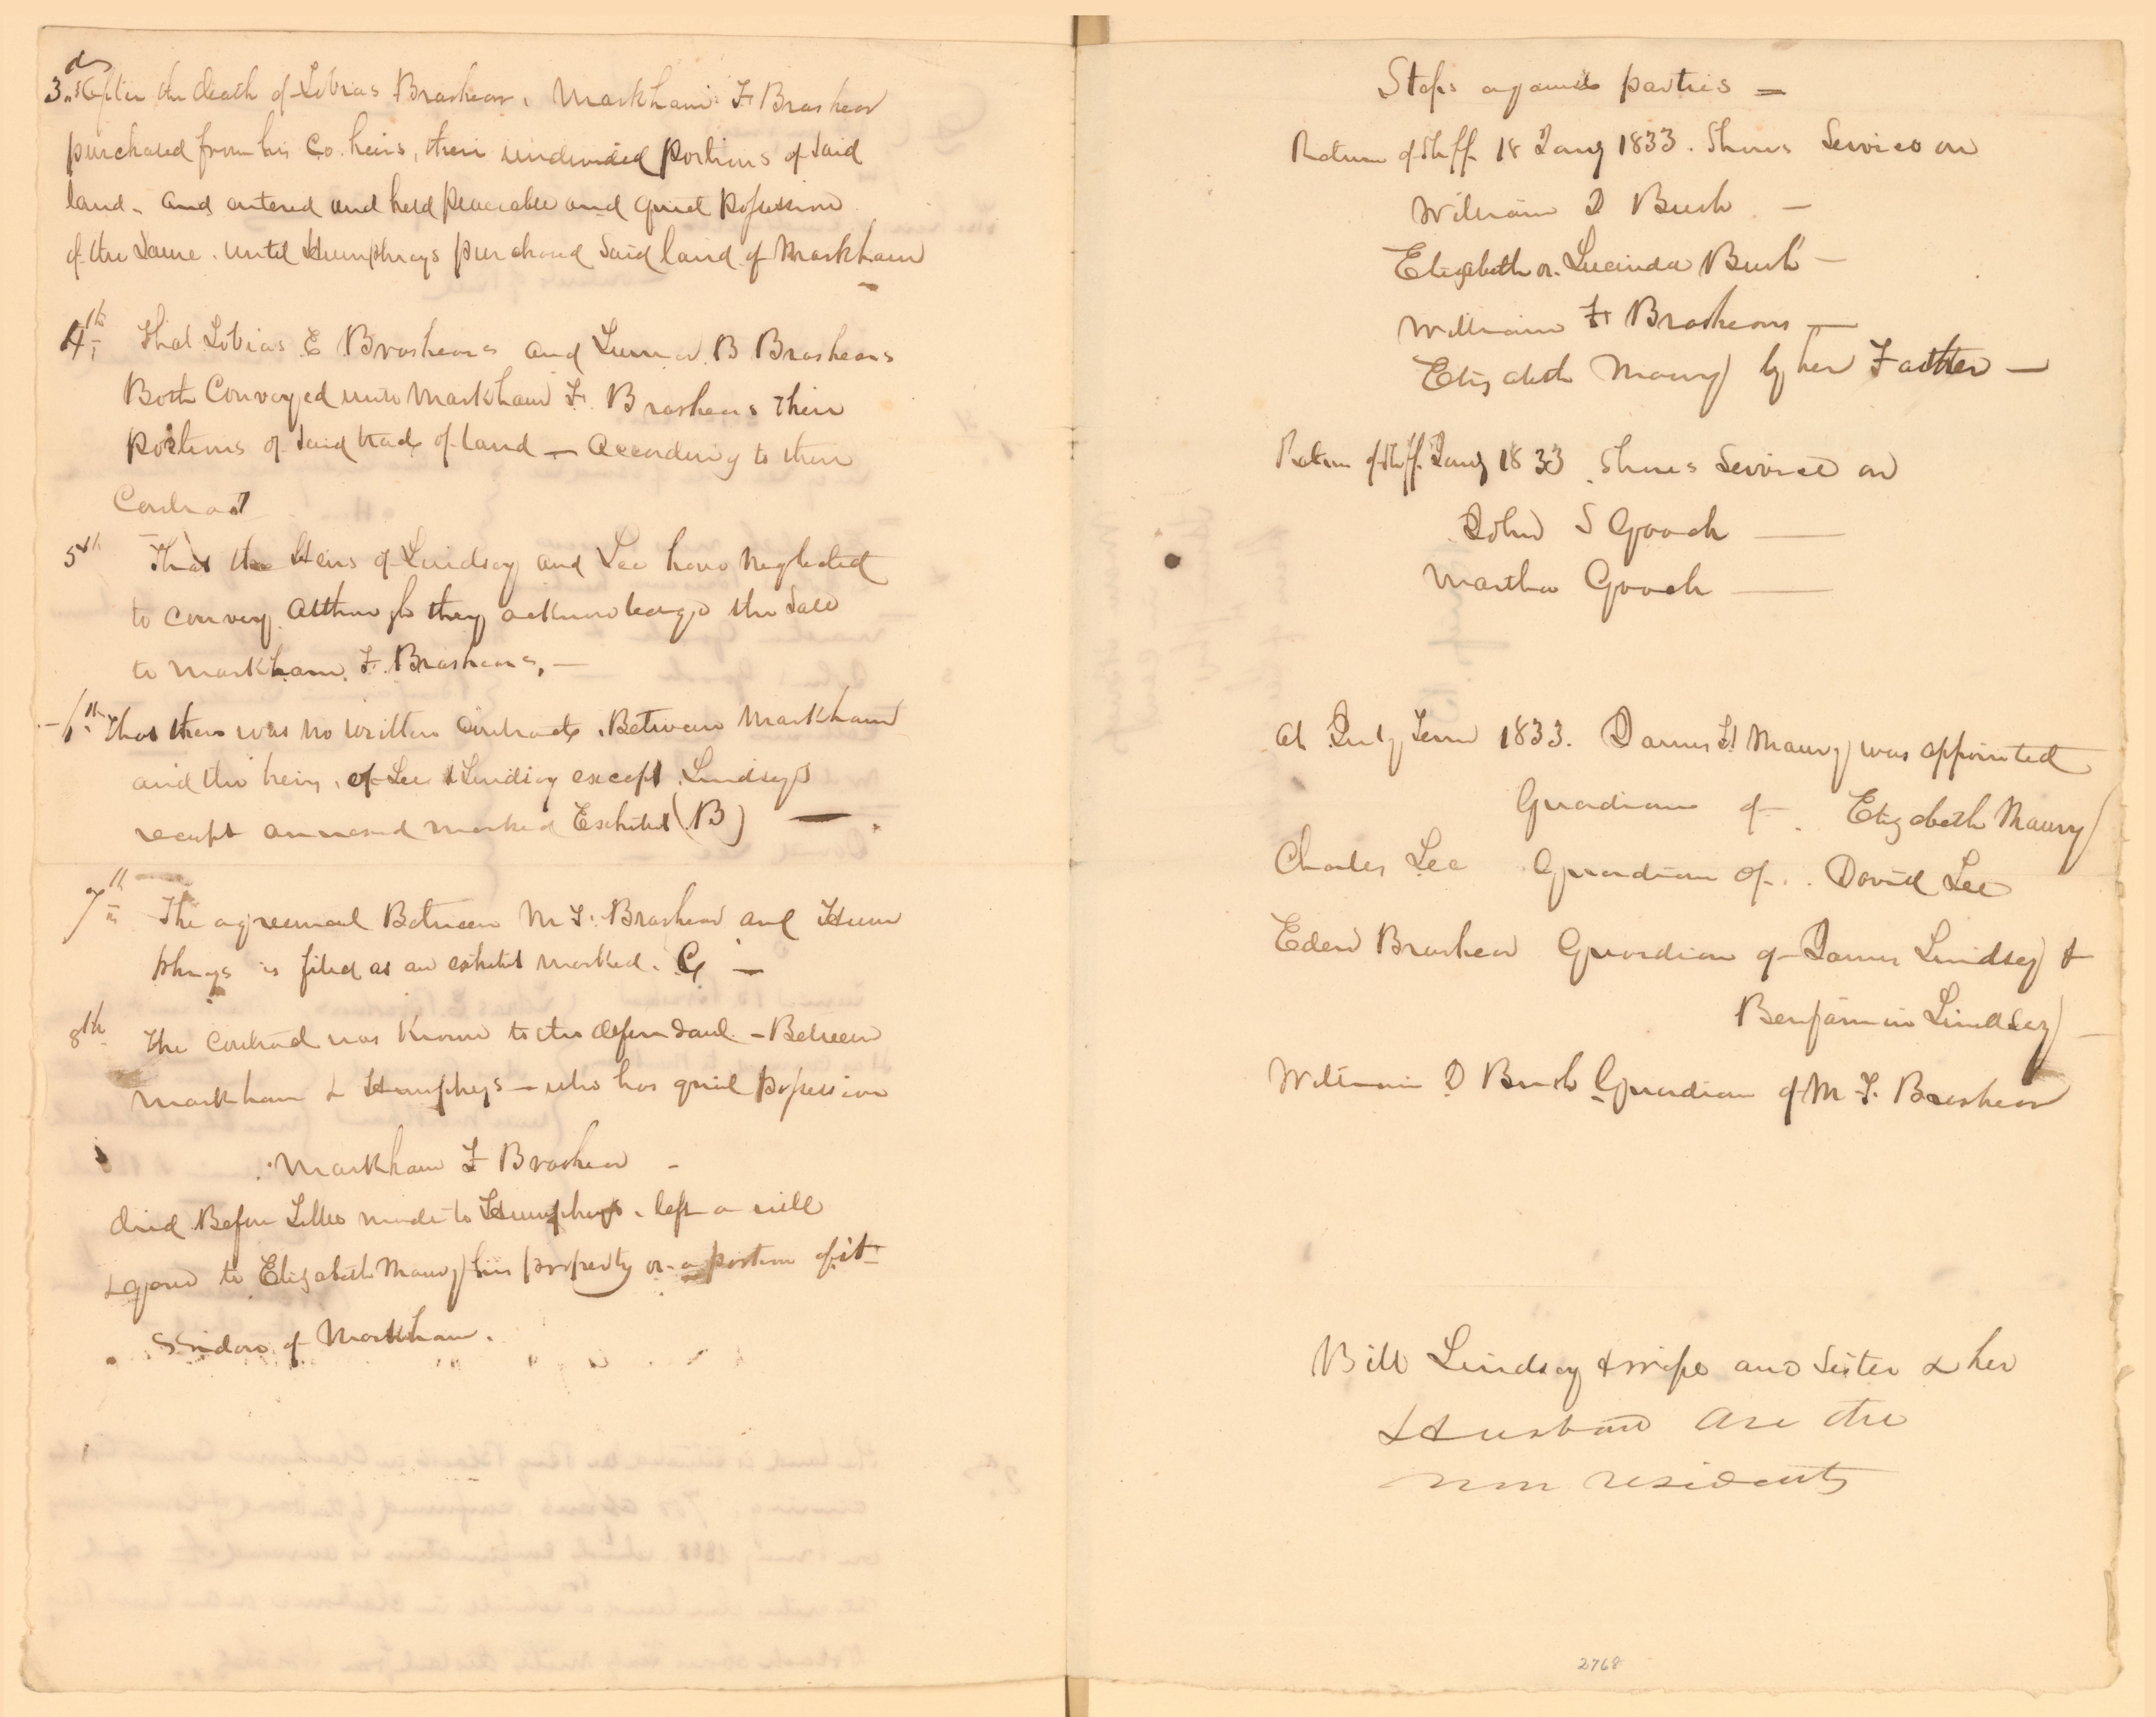 3.d After the death of Tobias Brashear, Markham F Brashear
purchased from his Co. heirs, their undivided portions of said
land. and entered and held peaceable and quiet possession
of the same. until Humphreys purchased said land of Markham
4th That Tobias E Brashears and Turner B Brashears
Both Conveyed unto Markham F. Brashears their
portions of said tract of land — According to their
Contract
5th That the Heirs of Lindsay and Lee have neglected
to convey although they acknowledge the sale
to Markham F. Brashears, —
6th That there was no written Contracts, Between Markham
and the heirs, of Lee & Lindsay except Lindsays
receipt annexed marked Exhibit (B) —
7th The agreement Between M F. Brashear and Hum
phreys is filed as an exhibit marked. C —
8th The contract was known to the defendant – Between
Markham & Humphreys — who has quiet possession
Markham F Brashear –
died Before Titles made to Humphreys, left a will
& gave to Elizabeth Maury his property or a portion of it
widow of Markham.
Steps against parties =
Return of Shff. 18 Jany 1833. Shows Service on
William D Bush —
Elizabeth or Lucinda Bush —
William F Brashears —
Elizabeth Maury by her Father —
Return of Shff. Jany 1833 Shows Service on
John S Gooch —
Martha Gooch —
At July Term 1833. James H Maury was appointed
Guardian of Elizabeth Maury
Charles Lee Guardian of David Lee
Eden Brashear Guardian of James Lindsey &
Benjamin Lindsey —
William D Bush Guardian of M F. Brashear
Bill Lindsay & wife and Sister & her
Husband are the
non residents
2768